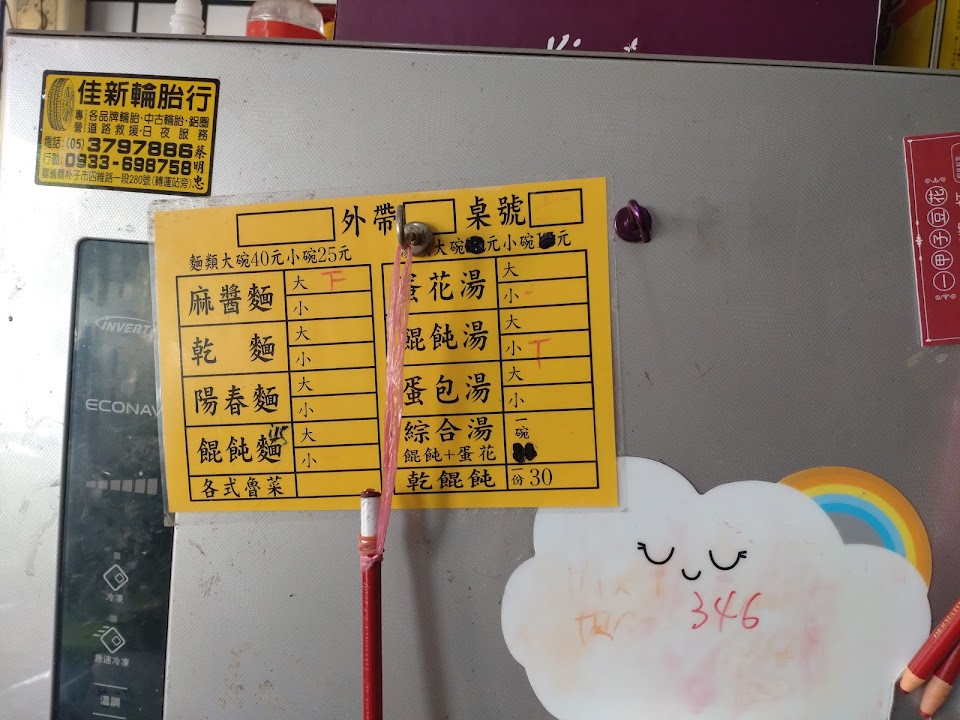 佳新輪胎行
專營
各品牌輪胎·中古輪胎·鋁圈
道路救援·日夜服務
電話:(05)3797886
行動:0933-698758
蔡明忠
嘉義縣朴子市四維路一段280號(轉運站旁)
外帶 桌號
麵類大碗40元小碗25元
大碗 元小碗 元
麻醬麵 大 下
小
乾 麵 大
小
陽春麵 大
小
餛飩麵 45 大
小
各式魯菜
蛋花湯 大
小
餛飩湯 大
小 下
蛋包湯 大
小
綜合湯 一碗
餛飩+蛋花
乾餛飩 一份30
INVERT
ECONAV
冷凍
急速冷凍
溫調
一甲子豆花
346